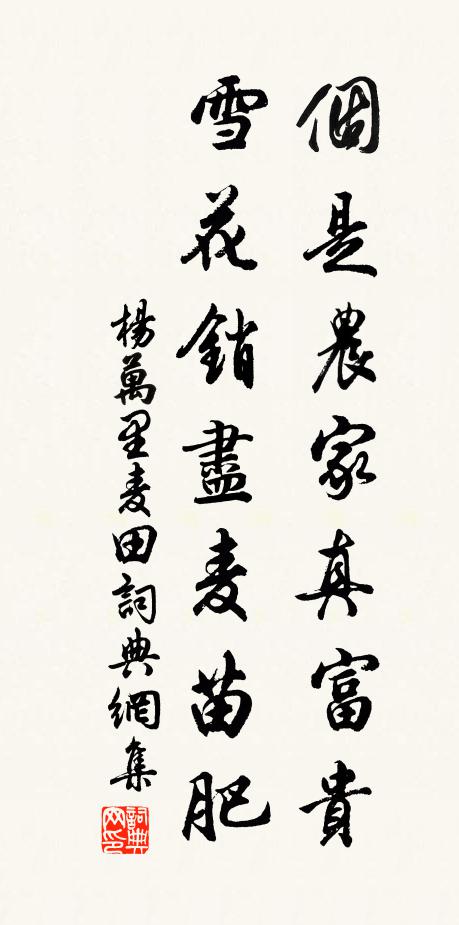 個是農家真富貴
雪花銷盡麦苗肥
楊萬里麦田詞典網集
詞典网印